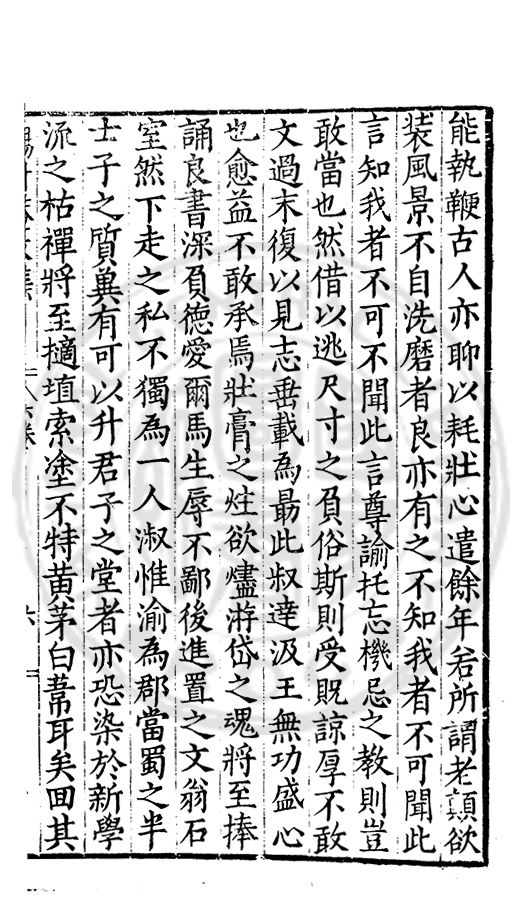 能執鞭古人亦聊以耗壯心遣餘年若所謂老顛欲
裝風景不自洗磨者良亦有之不知我者不可聞此
言知我者不可不聞此言尊諭托忘機忌之教則豈
敢當也然借以逃尺寸之負俗斯則受貺諒厚不敢
文過末復以見志垂載為最此叔達汲王無功盛心
也愈益不敢承焉壯膏之炷欲燼游岱之魂將至捧
誦良書深負德愛爾馬生辱不鄙後進置之文翁石
室然下走之私不獨為一人淑惟渝為郡當蜀之半
士子之質異有可以升君子之堂者亦恐染於新學
流之枯禪將至擿埴索塗不特黃茅白葦耳矣回其